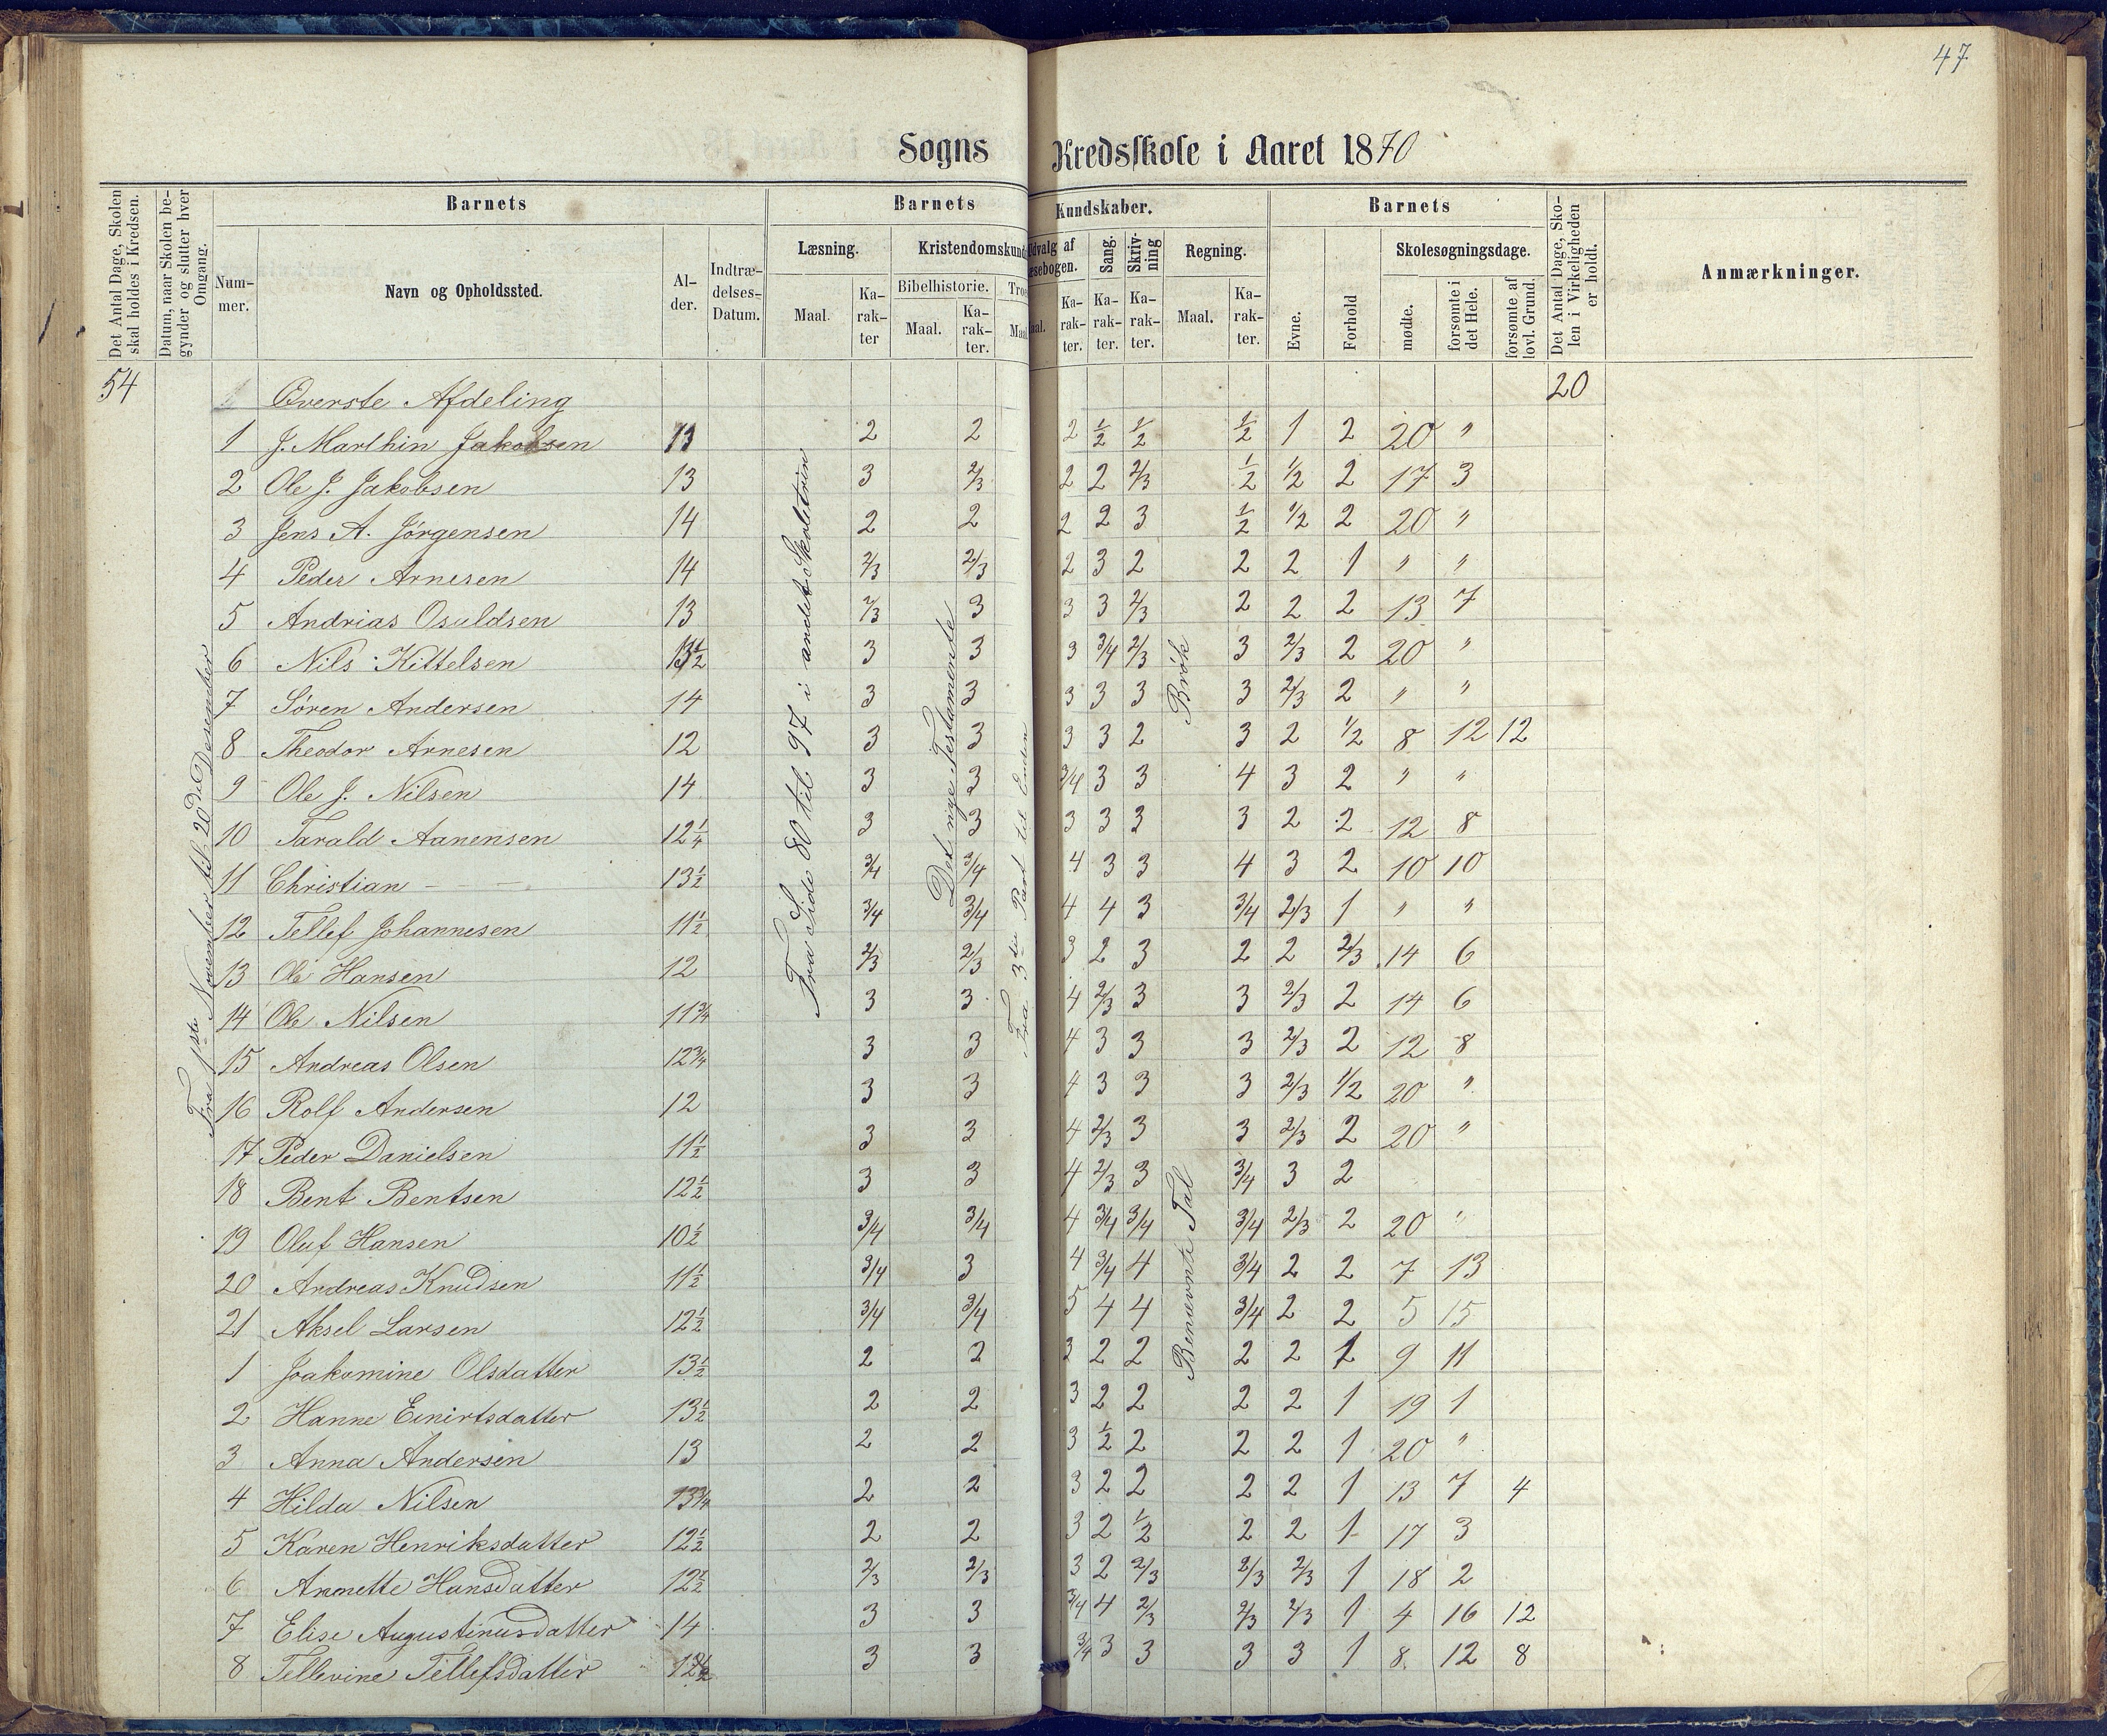 47
Sogns Kredsskole i Aaret 1870
Det Antal Dage, Skolen skal holdes i Kredsen.
Datum, naar Skolen begynder og slutter hver Omgang.
Barnets
Nummer.
Navn og Opholdssted.
Alder.
Indtrædelses-Datum.
Barnets Kundskaber.
Læsning.
Maal.
Karakter
Kristendomskund
Bibelhistorie.
Maal.
Karakter.
Troe
Maal
Udvalg af
æsebogen.
aal.
Karakter.
Sang.
Karakter.
Skrivning
Karakter.
Regning.
Maal.
Karakter.
Barnets
Evne.
Forhold
Skolesøgningsdage.
mødte.
forsømte i det Hele.
forsømte af lovl. Grund.
Det Antal Dage, Skolen i Virkeligheden er holdt.
Anmærkninger.
54 Øverste Afdeling 20
Fra 1ste November til 20de Desember
Fra Side 80 til 97 i andet Skoletrin
Det nye Testamente
Fra 3die Part til Enden
Brøk
Benævnte Tal
1 J. Marthin Jakobsen 13 2 2 2 1/2 1/2 1/2 1 2 20 "
2 Ole J. Jakobsen 13 3 2/3 2 2 2/3 1/2 1/2 2 17 3
3 Jens A. Jørgensen 14 2 2 2 2 3 1/2 1/2 2 20 "
4 Peder Arnesen 14 2/3 2/3 2 3 2 2 2 1 " "
5 Andrias Osuldsen 13 2/3 3 3 3 2/3 2 2 2 13 7
6 Nils Kittelsen 13 1/2 3 3 3 3/4 2/3 3 2/3 2 20 "
7 Søren Andersen 14 3 3 3 3 3 3 2/3 2 " "
8 Theodor Arnesen 12 3 3 3 3 2 3 2 1/2 8 12 12
9 Ole J. Nilsen 14 3 3 3/4 3 3 4 3 2 " "
10 Tarald Aanensen 12 1/4 3 3 3 3 3 3 2 2 12 8
11 Christian - - - 13 1/2 3/4 3/4 4 3 3 4 3 2 10 10
12 Tellef Johannesen 11 1/2 3/4 3/4 4 4 3 3/4 2/3 1 " "
13 Ole Hansen 12 2/3 2/3 3 2 3 2 2 2/3 14 6
14 Ole Nilsen 11 3/4 3 3 4 2/3 3 3 2/3 2 14 6
15 Andreas Olsen 12 3/4 3 3 4 3 3 3 2/3 2 12 8
16 Rolf Andersen 12 3 3 4 3 3 3 2/3 1/2 20 "
17 Peder Danielsen 11 1/2 3 3 4 2/3 3 3 2/3 2 20 "
18 Bent Bentsen 12 1/2 3 3 4 2/3 3 3/4 3 2
19 Oluf Hansen 10 1/2 3/4 3/4 4 3/4 3/4 3/4 2/3 2 20 "
20 Andreas Knudsen 11 1/2 3/4 3 4 3/4 4 3/4 2 2 7 13
21 Aksel Larsen 12 1/2 3/4 3/4 5 4 4 3/4 2 2 5 15
1 Joakomine Olsdatter 13 1/2 2 2 3 2 2 2 2 1 9 11
2 Hanne Einirtsdatter 13 1/2 2 2 3 2 2 2 2 1 19 1
3 Anna Andersen 13 2 2 3 1/2 2 2 2 1 20 "
4 Hilda Nilsen 13 3/4 2 2 3 2 2 2 2 1 13 7 4
5 Karen Henriksdatter 12 1/2 2 2 3 2 1/2 2 2 1 17 3
6 Anmette Hansdatter 12 1/2 2/3 2/3 3 2 2/3 2/3 2/3 1 18 2
7 Elise Augustinusdatter 14 3 3 3/4 4 2/3 2/3 2/3 1 4 16 12
8 Tellevine Tellefsdatter 12 1/2 3 3 3/4 3 3 3 3 1 8 12 8